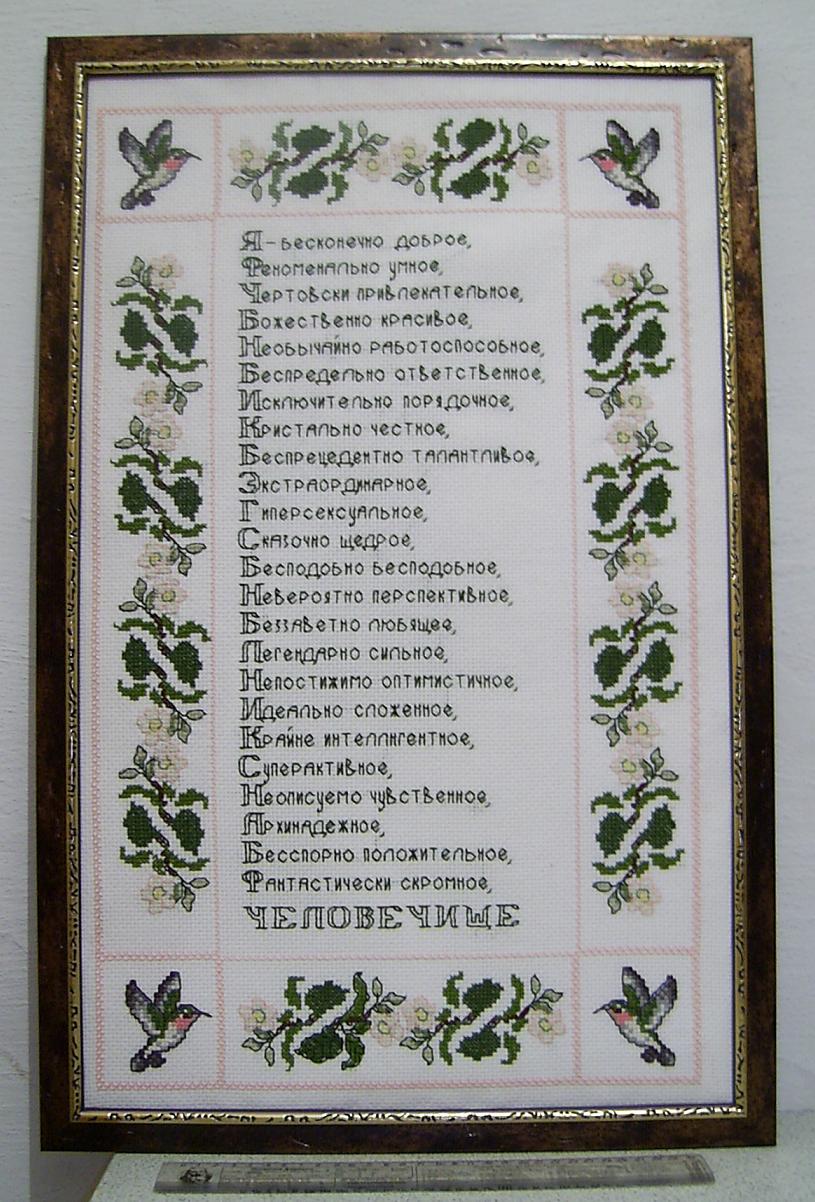 Я - бесконечно доброе,
Феноменально умное,
Чертовски привлекательное,
Божественно красивое,
Необычайно работоспособное,
Беспредельно ответственное,
Исключительно порядочное,
Кристально честное,
Беспрецедентно талантливое,
Экстраординарное,
Гиперсексуальное,
Сказочно щедрое,
Бесподобно бесподобное,
Невероятно перспективное,
Беззаветно любящее,
Легендарно сильное,
Непостижимо оптимистичное,
Идеально сложенное,
Крайне интеллигентное,
Суперактивное,
Неописуемо чувственное,
Архинадежное,
Бесспорно положительное,
Фантастически скромное,
ЧЕЛОВЕЧИЩЕ